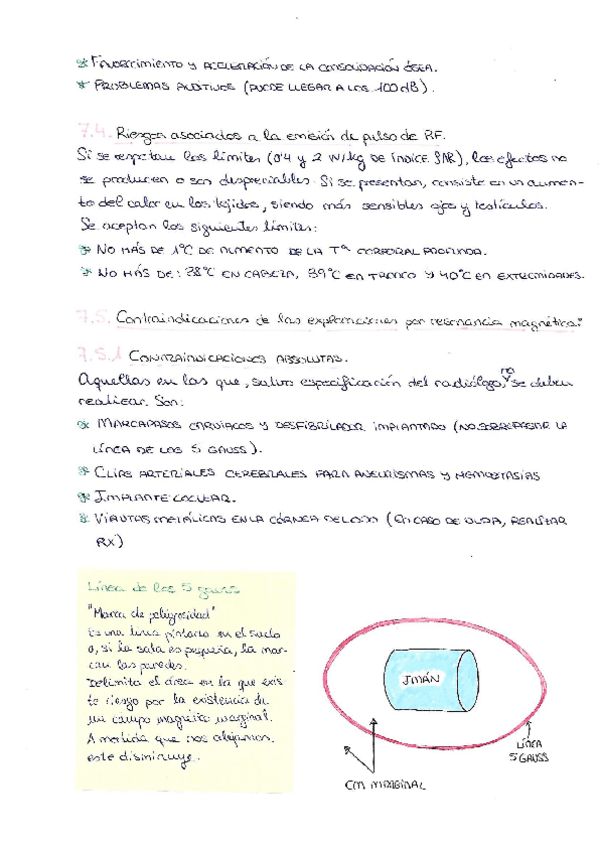 * Favorecimiento y aceleración de la consolidación ósea.
* Problemas auditivos (puede llegar a los 100 dB).
7.4. Riesgos asociados a la emisión de pulso de RF.
Si se respetan los límites (0'4 y 2 W/kg de índice SAR), los efectos no
se producen o son despreciables. Si se presentan, consiste en un aumen-
to del calor en los tejidos, siendo más sensibles ojos y testículos.
Se aceptan los siguientes límites:
* No más de 1°C de aumento de la Tª corporal profunda.
* No más de: 38°C en cabeza, 39°C en tronco y 40°C en extremidades.
7.5. Contraindicaciones de las exploraciones por resonancia magnética:
7.5.1 Contraindicaciones absolutas.
Aquellas en las que, salvo especificación del radiólogo, no se deben
realizar. Son:
* Marcapasos cardíacos y desfibrilador implantado (no sobrepasar la
línea de los 5 gauss).
* Clips arteriales cerebrales para aneurismas y hemostasias
* Implante coclear.
* Virutas metálicas en la córnea del ojo (en caso de duda, realizar
RX)
Línea de los 5 gauss
"Marca de peligrosidad"
Es una línea pintada en el suelo
o, si la sala es pequeña, la mar-
can las paredes.
Delimita el área en la que exis-
te riesgo por la existencia de
un campo magnético marginal.
A medida que nos alejamos,
este disminuye.
IMÁN
LÍNEA
5 GAUSS
CM MARGINAL